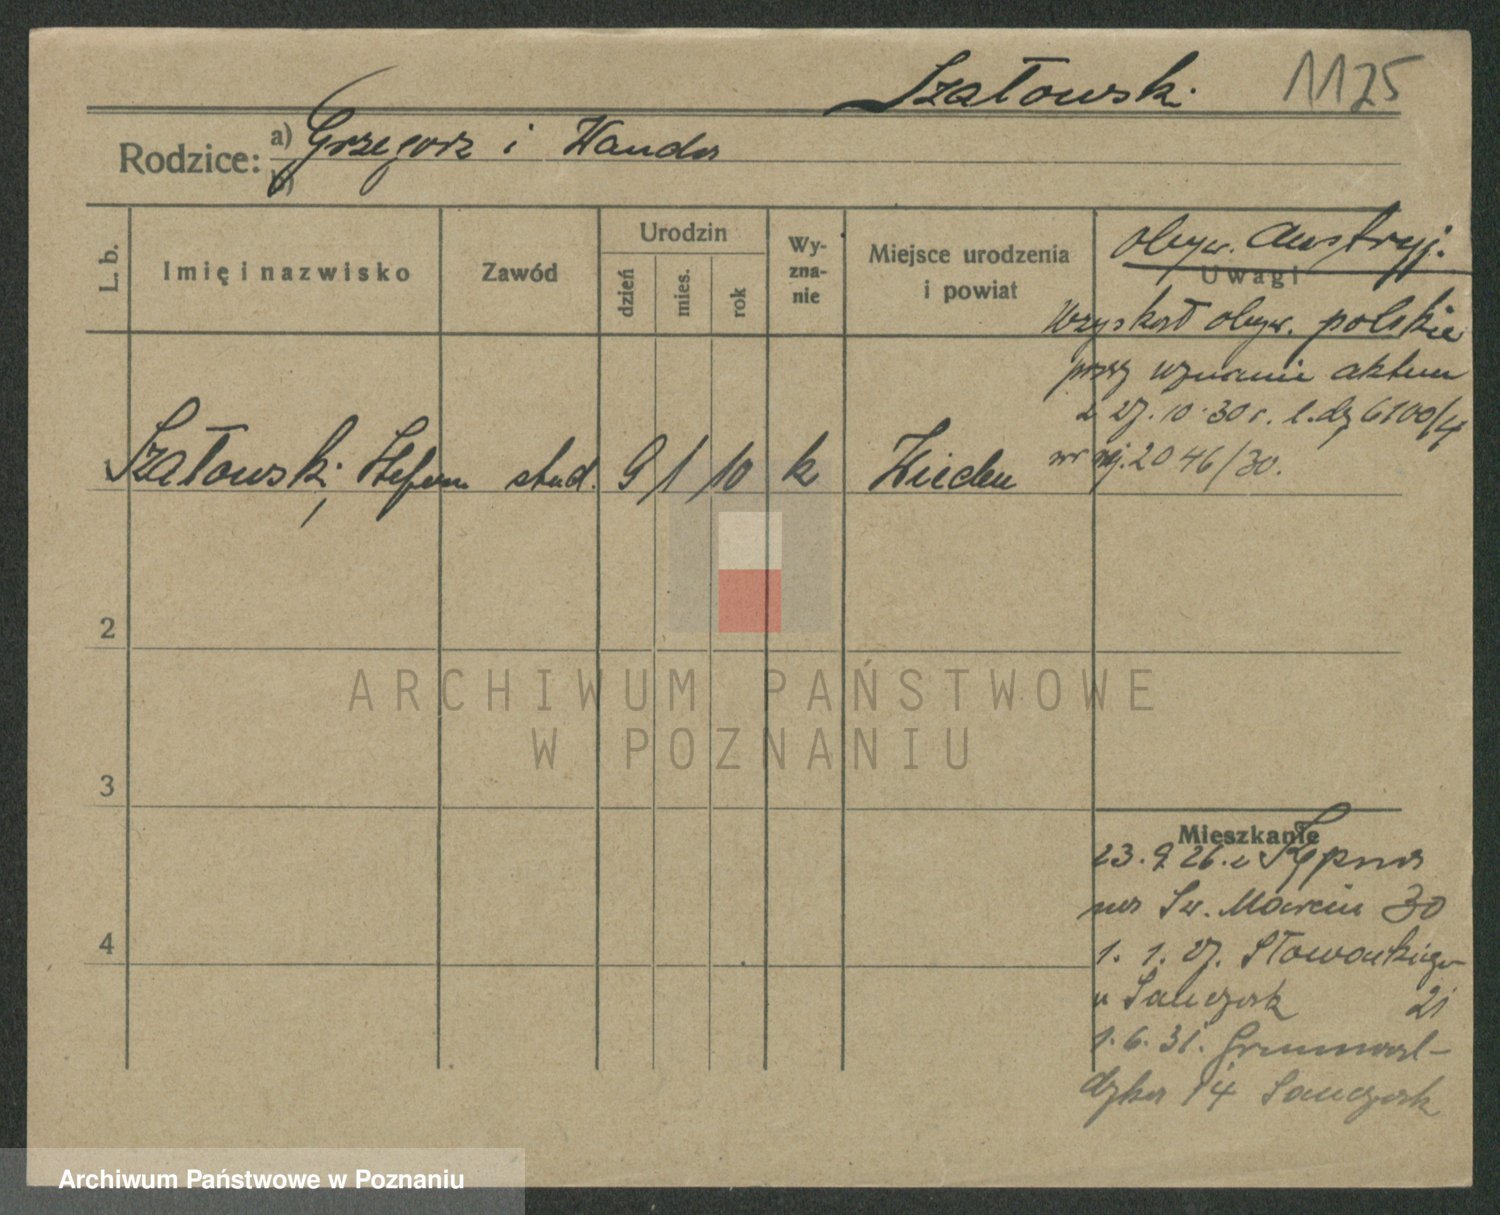 Szałowski. 1125
Rodzice: a) Grzegorz i Wanda
b)
L. b. Imię i nazwisko Zawód Urodzin dzień mies. rok Wy-zna-nie Miejsce urodzenia i powiat Uwagi
obyw. Austryj.
Uzyskał obyw. polskie
przez uznanie aktem
z 27. 10. 30 r. l. dz 6100/4
nr rej. 2046/30.
Szałowski, Stefan stud. 9/1/10 k Wiedeń
2
ARCHIWUM PAŃSTWOWE
W POZNANIU
3
Mieszkanie
23. 9. 26. z Kępna
na Św. Marcin 30
4
1. 1. 27. Słowackiego
u Sawczuk 21
1. 6. 31. Grunwal-
dzka 14 Sawczuk
Archiwum Państwowe w Poznaniu